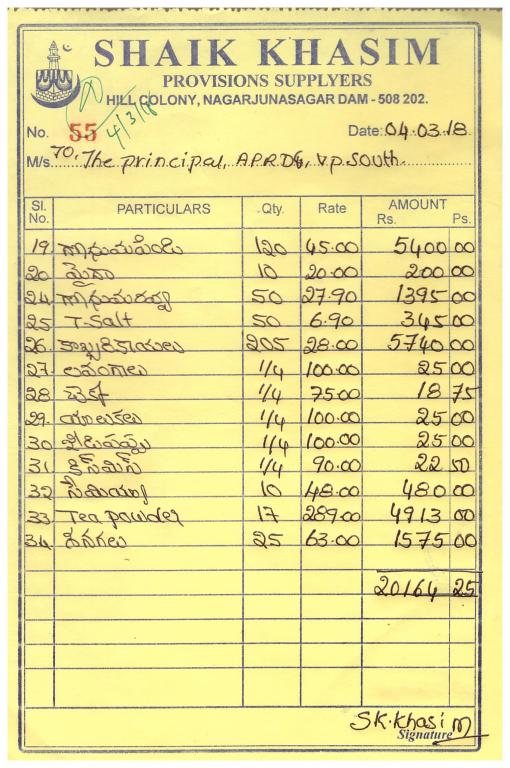 SHAIK KHASIM
PROVISIONS SUPPLYERS
HILL COLONY, NAGARJUNASAGAR DAM - 508 202.
4/3/18
No. 55 Date: 04.03.18
M/s To, The principal, APRDC, VP South.
Sl. No. PARTICULARS Qty. Rate AMOUNT Rs. Ps.
19 గోధుమపిండి 120 45.00 5400 00
20 మైదా 10 20.00 200 00
24 గోధుమరవ్వ 50 27.90 1395 00
25 T-Salt 50 6.90 345 00
26 కొబ్బరికాయలు 205 28.00 5740 00
27 లవంగాలు 1/4 100.00 25 00
28 చెక్క 1/4 75.00 18 75
29 యాలకలు 1/4 100.00 25 00
30 జీడిపప్పు 1/4 100.00 25 00
31 కిస్మిస్ 1/4 90.00 22 50
32 సేమియా 10 48.00 480 00
33 Tea powder 17 289.00 4913 00
34 శనగలు 25 63.00 1575 00
20164 25
SK.Khasim
Signature